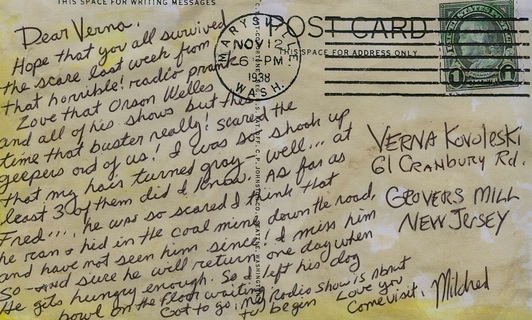 THIS SPACE FOR WRITING MESSAGES
Dear Verna,
Hope that you all survived
the scare last week from
that horrible! radio prank
Love that Orson Welles
and all of his shows but the
time that buster really! scared the
geepers out of us! I was so shook up
that my hair turned gray - well... at
least 3 of them did I know. As far as
Fred..., he was so scared I think that
he ran & hid in the coal mine down the road,
and have not seen him since! I miss him
So - and sure he will return one day when
He gets hungry enough. So I left his dog
bowl on the floor waiting
Got to go, my Radio show is about
to begin Love you
Come visit, Mildred
POST CARD
THIS SPACE FOR ADDRESS ONLY
MARYSVILLE
NOV 12
6 PM
1938
WASH.
1 1
VERNA KOVOLESKI
61 CRANBURY Rd.
GROVERS MILL
NEW JERSEY